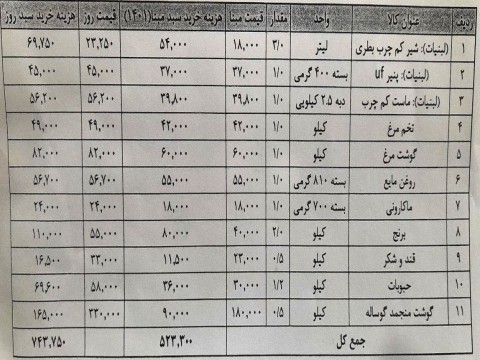 ردیف عنوان کالا واحد مقدار قیمت مبنا هزینه خرید سبد مبنا(۱۴۰۱) قیمت روز هزینه خرید سبد روز
۱ (لبنیات): شیر کم چرب بطری لیتر ۳/۰ ۱۸,۰۰۰ ۵۴,۰۰۰ ۲۳,۲۵۰ ۶۹,۷۵۰
۲ (لبنیات): پنیر uf بسته ۴۰۰ گرمی ۱/۰ ۳۷,۰۰۰ ۳۷,۰۰۰ ۴۵,۰۰۰ ۴۵,۰۰۰
۳ (لبنیات): ماست کم چرب دبه ۲.۵ کیلویی ۱/۰ ۳۹,۸۰۰ ۳۹,۸۰۰ ۵۶,۲۰۰ ۵۶,۲۰۰
۴ تخم مرغ کیلو ۱/۰ ۴۲,۰۰۰ ۴۲,۰۰۰ ۴۹,۰۰۰ ۴۹,۰۰۰
۵ گوشت مرغ کیلو ۱/۰ ۶۰,۰۰۰ ۶۰,۰۰۰ ۸۲,۰۰۰ ۸۲,۰۰۰
۶ روغن مایع بسته ۸۱۰ گرمی ۱/۰ ۵۵,۰۰۰ ۵۵,۰۰۰ ۵۶,۷۰۰ ۵۶,۷۰۰
۷ ماکارونی بسته ۷۰۰ گرمی ۱/۰ ۱۸,۰۰۰ ۱۸,۰۰۰ ۲۴,۰۰۰ ۲۴,۰۰۰
۸ برنج کیلو ۲/۰ ۴۰,۰۰۰ ۸۰,۰۰۰ ۵۵,۰۰۰ ۱۱۰,۰۰۰
۹ قند و شکر کیلو ۰/۵ ۲۳,۰۰۰ ۱۱,۵۰۰ ۳۳,۰۰۰ ۱۶,۵۰۰
۱۰ حبوبات کیلو ۱/۲ ۳۰,۰۰۰ ۳۶,۰۰۰ ۵۸,۰۰۰ ۶۹,۶۰۰
۱۱ گوشت منجمد گوساله کیلو ۰/۵ ۱۸۰,۰۰۰ ۹۰,۰۰۰ ۳۳۰,۰۰۰ ۱۶۵,۰۰۰
جمع کل ۵۲۳,۳۰۰ ۷۴۳,۷۵۰